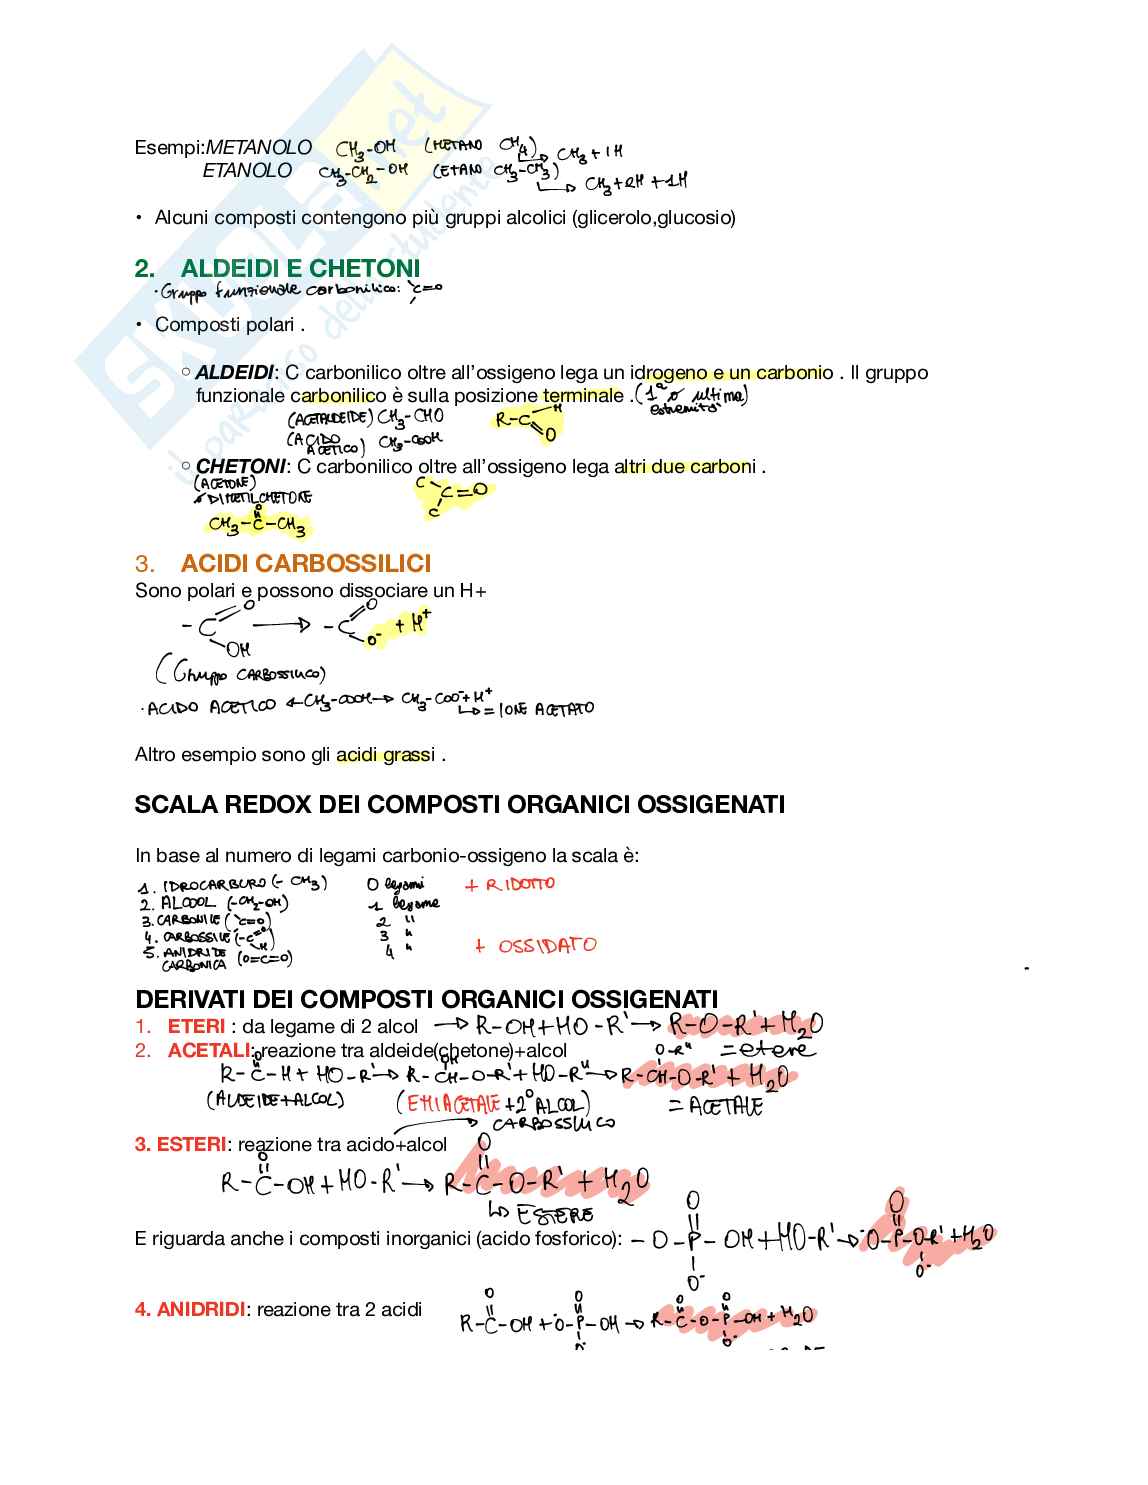 Esempi:METANOLO CH3-OH (METANO CH4) → CH3+1H
ETANOLO CH3-CH2-OH (ETANO CH3-CH3) → CH3+2H+1H
• Alcuni composti contengono più gruppi alcolici (glicerolo,glucosio)
2. ALDEIDI E CHETONI
·Gruppo funzionale carbonilico: C=O
• Composti polari .
○ ALDEIDI: C carbonilico oltre all’ossigeno lega un idrogeno e un carbonio . Il gruppo
funzionale carbonilico è sulla posizione terminale .(1ª o ultima)
estremità
(ACETALDEIDE) CH3-CHO
R-C H O
(ACIDO ACETICO) CH3-COOH
○ CHETONI: C carbonilico oltre all’ossigeno lega altri due carboni .
(ACETONE)
DIMETILCHETONE
C C C=O
O
CH3-C-CH3
3. ACIDI CARBOSSILICI
Sono polari e possono dissociare un H+
-C O OH → -C O O- + H+
(Gruppo CARBOSSILICO)
·ACIDO ACETICO ← CH3-COOH → CH3-COO- + H+
↳ = IONE ACETATO
Altro esempio sono gli acidi grassi .
SCALA REDOX DEI COMPOSTI ORGANICI OSSIGENATI
In base al numero di legami carbonio-ossigeno la scala è:
1. IDROCARBURO (- CH3) 0 legami + RIDOTTO
2. ALCOOL (-CH2-OH) 1 legame
3. CARBONILE (C=O) 2 "
4. CARBOSSILE (-C=O H) 3 "
5. ANIDRIDE CARBONICA (O=C=O) 4 " + OSSIDATO
DERIVATI DEI COMPOSTI ORGANICI OSSIGENATI
1. ETERI : da legame di 2 alcol → R-OH+HO-R' → R-O-R'+H2O
= etere
2. ACETALI: reazione tra aldeide(chetone)+alcol
O OH O-R"
R-C-H + HO-R' → R-CH-O-R' + HO-R" → R-CH-O-R' + H2O
(ALDEIDE+ALCOL) (EMIACETALE +2° ALCOL) = ACETALE
CARBOSSILICO
3. ESTERI: reazione tra acido+alcol
O O
R-C-OH+HO-R' → R-C-O-R' + H2O
↳ ESTERE
E riguarda anche i composti inorganici (acido fosforico): -O-P-OH+HO-R' → -O-P-O-R'+H2O
O O
O- O-
4. ANIDRIDI: reazione tra 2 acidi
O O O O
R-C-OH + -O-P-OH → R-C-O-P-OH + H2O
O- O-